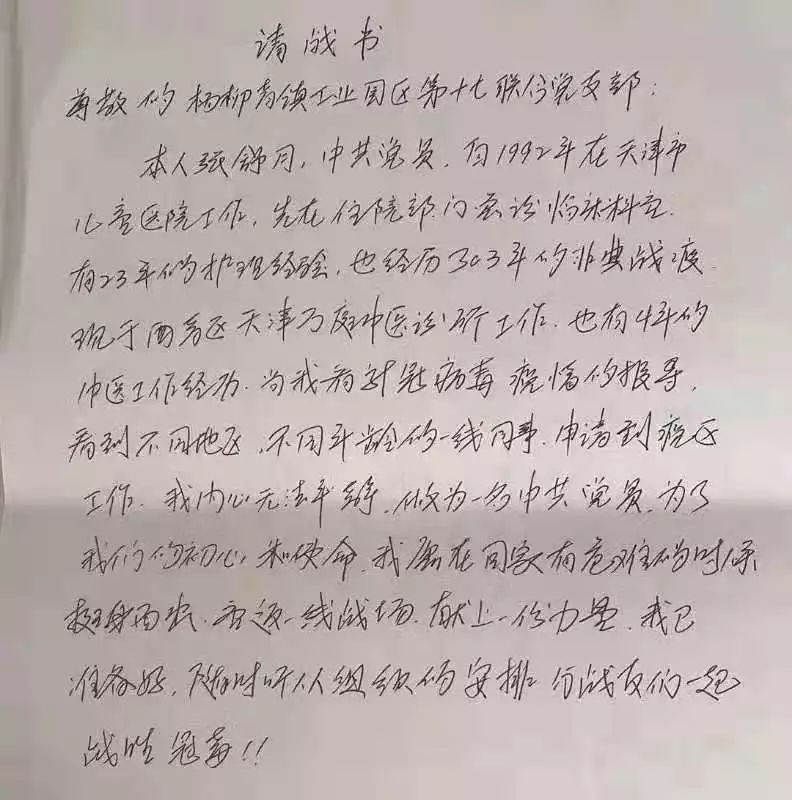 请战书
尊敬的杨柳青镇工业园区第十七联合党支部:
本人张舒月,中共党员,自1992年在天津市
儿童医院工作,先在住院部门急诊临床科室.
有23年的护理经验,也经历303年的非典战疫.
现于西青区天津万庭中医诊所工作.也有4年的
中医工作经历.当我看到冠病毒疫情的报导,
看到不同地区,不同年龄的一线同事.申请到疫区
工作.我内心无法平静,做为一名中共党员,为了
我们的初心和使命,我愿在国家有危难的时候
挺身而出.重返一线战场.献上一份力量.我已
准备好,随时听从组织的安排 与战友们一起
战胜冠毒!!